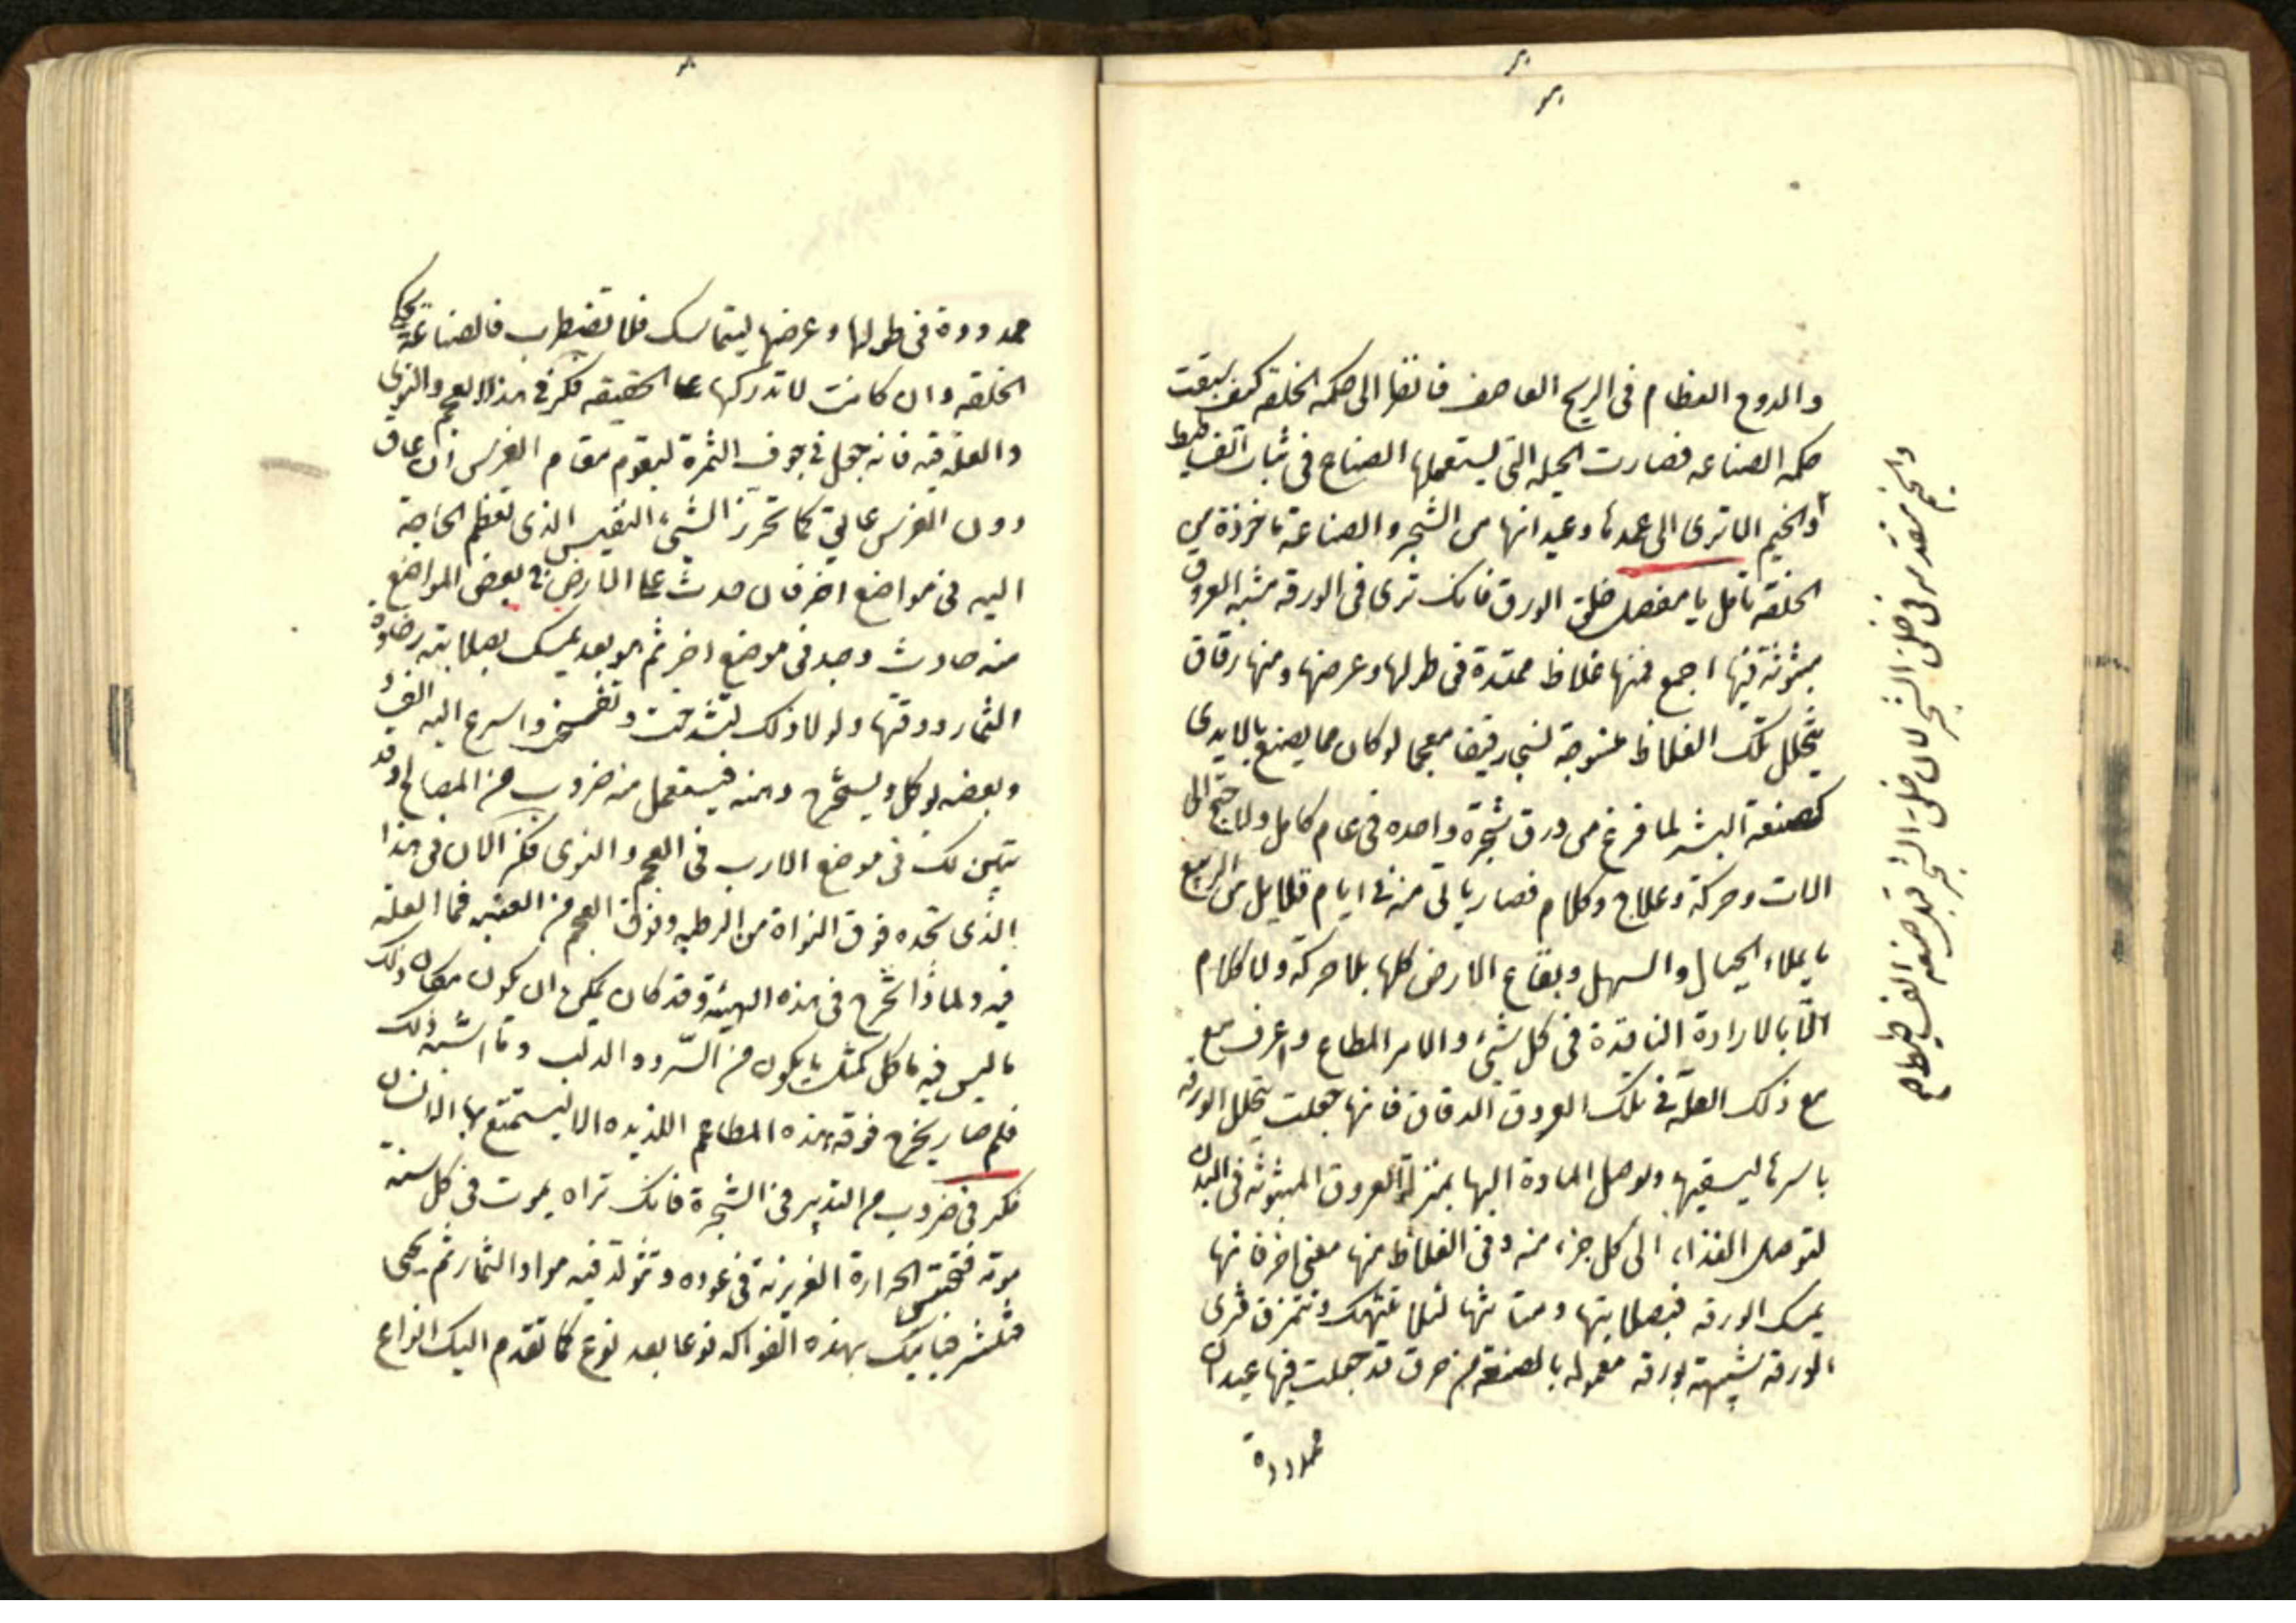 والدوح العظام في الريح العاصف فانظر الى حكمه الخلقه كيف سبقت
حكمه الصناعه فصارت الحيله التي يستعملها الصناع في ثبات الفساطيط
والخيم الا ترى الى عمدها وعيدانها من الشجر والصناعة ماخوذة من
الخلقه تامل يا مفضل خلق الورق فانك ترى في الورقه شبه العروق
مبثوثة فيها اجمع فمنها غلاظ ممتدة في طولها وعرضها ومنها رقاق
يتخلل تلك الغلاظ منسوجة نسجا رقيقا معجما لو كان مما يصنع بالايدى
كصنعة البشر لما فرغ من ورق شجرة واحده في عام كامل ولاحتيج الى
الات وحركة وعلاج وكلام فصار ياتي منه في ايام قلايل من الربيع
ما يملاء الجبال والسهل وبقاع الارض كلها بلا حركة ولا كلام
الّا بالارادة النافذة في كل شيء والامر المطاع واعرف مع
مع ذلك العلّة في تلك العروق الدقاق فانها جعلت يتخلل الورقه
باسرها ليسقيها ويوصل المادة اليها بمنزلة العروق المبثوثه في البدن
لتوصل الغذاء الى كل جزء منه وفي الغلاظ منها معنى اخر فانها
يمسك الورقه فبصلابتها ومتانتها لئلا تنتهك وتتمزق فترى
الورقه شبيهة بورقه معموله بالصنعة من خرق قد جعلت فيها عيدان
ممدودة
والخيم متقدمه في خلق الشجر لان خلق الشجر قبل صنعه الفساطيط
ممدودة في طولها وعرضها ليتماسك فلا تضطرب فالصناعة تحكى
الخلقه وان كانت لا تدركها على الحقيقه فكر في هذا العجم والنوى
والعلة فيه فانه جعل في جوف الثمرة ليقوم مقام الغرس ان عاق
دون الغرس عايق كما تحرز الشيء النفيس الذى تعظم الحاجة
اليه في مواضع اخر فان حدث على الذى في بعض المواضع
منه حادث وجد في موضع اخر ثم هو بعد يمسك بصلابته رخاوة
الثمار ورقتها ولولا ذلك لتشدخت وتفسخت واسرع اليه الفساد
وبعضه يوكل ويستخرج دهنه فيستعمل منه ضروب من المصالح وقد
تبين لك في موضع الارب في العجم والنوى فكر الان في هذا
الذى تجده فوق النواة من الرطبه وفوق العجم من العنبه فما العلّه
فيه ولماذا تخرج في هذه الهيئة وقد كان يمكن ان يكون مكان ذلك
ما ليس فيه ماكل كمثل ما يكون من السّرو والدلب وما اشبه ذلك
فلم صار يخرج فوقه هذه المطاعم اللذيذه الا ليستمتع بها الانسان
فكر في ضروب من التدبير في الشجرة فانك تراه يموت في كل سنة
موته فتحتبس الحرارة الغريزية في عوده وتتولد فيه مواد الثمار ثم يحيى
فتنشر فياتيك بهذه الفواكه نوعا بعد نوع كما تقدم اليك انواع